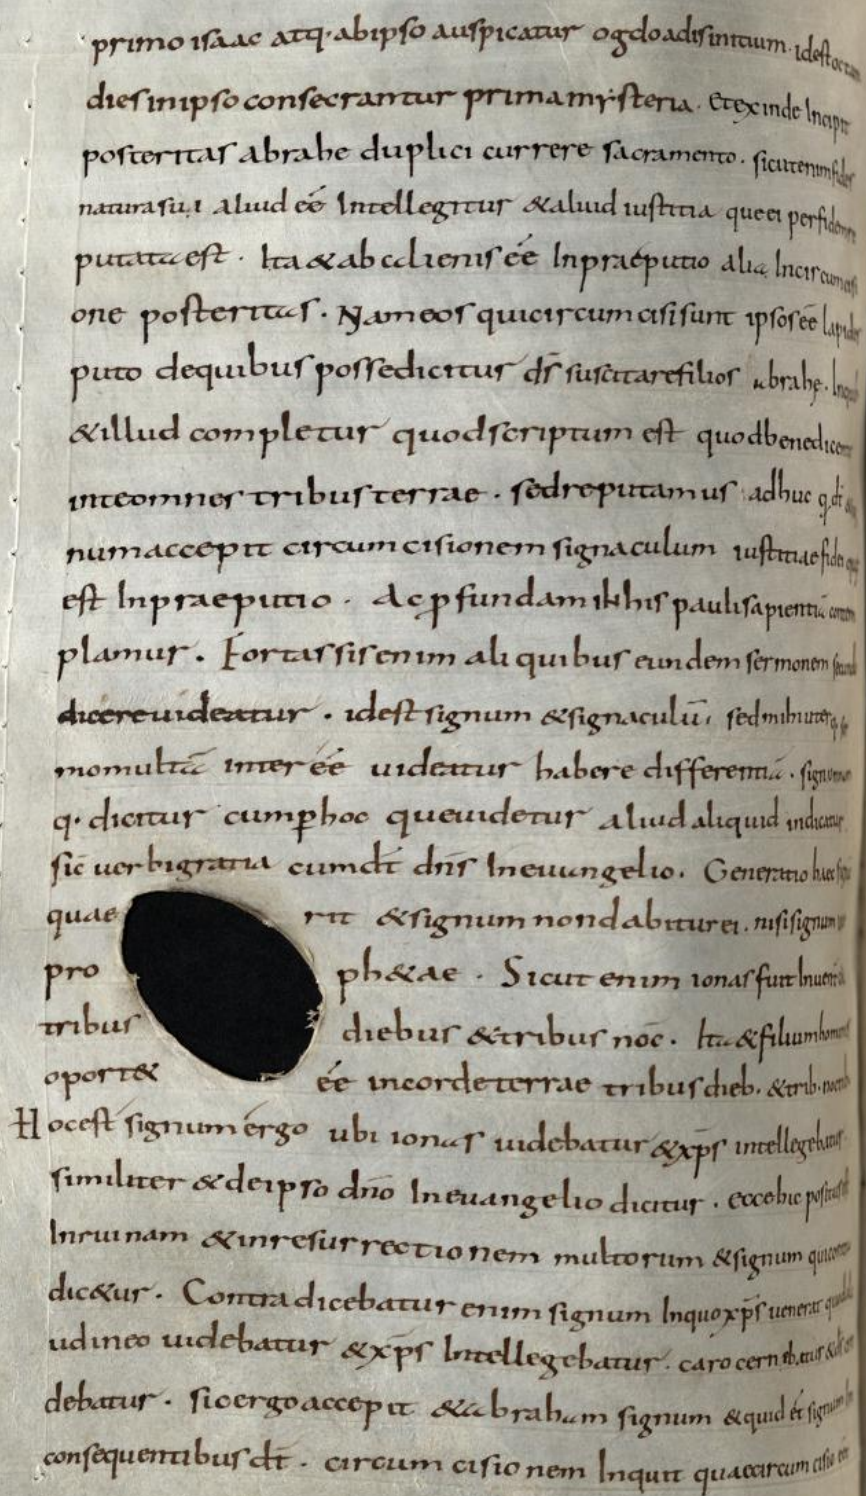 primo isaac atq· ab ipso auspicatur ogdoadis initium· id est
dies in ipso consecrantur prima mysteria· et exinde Incipit
posteritas abrahe duplici currere sacramento· sicut enim
natura sui aliud eé Intellegitur & aliud iustitia que ei per fidem
putata est· Ita & ab alienis eé In praeputio alia In circumcisi
one posteritas· Nam eos qui circumcisi sunt ipsos eē lapides
puto de quibus posse dicitur dš suscitare filios abrahę·
& illud completur quod scriptum est quod benedicen
in te omnes tribus terrae· sed reputamus adhuc q. dt̄
num accepit circumcisionem signaculum iustitiae fidei
est In praeputio· Ac p̱ fundam ihis pauli sapientiā
plamur. Fortassis enim aliquibus eundem sermonem
dicere uideatur· id est signum & signaculū, sed mihi
mo multā inter eé uideatur habere differentiā· signum
q· dicitur cum p̱ hoc que uidetur aliud aliquid indicatur
sic̄ uerbi gratia cum dt̄ dn̄s In euangelio. Generatio haec
quae rit & signum non dabitur ei· nisi signum
pro ph&ae· Sicut enim ionas fuit In
tribus diebus & tribus noc̄· Ita & filium hominis
oport& eé in corde terrae tribus dieb· & trib·
Hoc est signum ergo ubi ionas uidebatur & xp̄s intellegebatur
similiter & de ipso dn̄o In euangelio dicitur· ecce hic positus
In ruinam & in resurrectionem multorum & signum
dic&ur· Contradicebatur enim signum In quo xp̄s uenerat
ud in eo uidebatur & xp̄s Intellegebatur· caro cernebatur
debatur· sic ergo accepit & abraham signum & quid ét signum
consequentibus dt̄· circumcisionem Inquit quae circumcisio